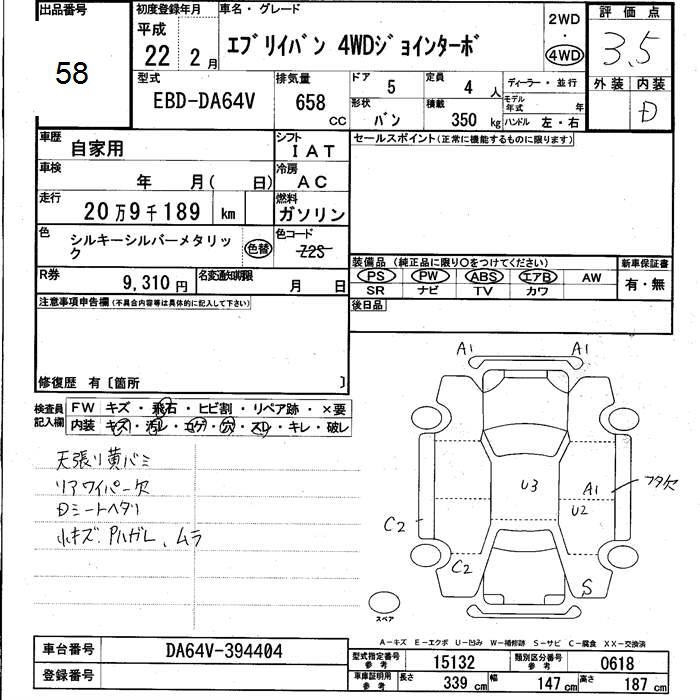 出品番号
58
初度登録年月
平成
22年 2月
車名・グレード
エブリイバン 4WDジョインターボ
2WD
・
4WD
評価点
3.5
外装 内装
D
型式
EBD-DA64V
排気量
658
CC
ドア 5
定員 4 人
形状 バン
積載 350 kg
ディーラー・並行
モデル年式 年
ハンドル 左・右
車歴
自家用
シフト
IAT
セールスポイント(正常に機能するものに限ります)
車検
年 月( 日)
冷房
AC
走行
20万9千189 km
燃料
ガソリン
色
シルキーシルバーメタリック
色替
色コード
Z2S
R券
9,310円
名変通知期限
月 日
装備品 (純正品に限り○をつけてください)
PS PW ABS エアB AW
SR ナビ TV カワ
新車保証書
有・無
注意事項申告欄(不具合内容等は具体的に記入して下さい)
後日品
修復歴 有〔箇所 〕
検査員記入欄
FW キズ・飛石・ヒビ割・リペア跡・×要
内装 キズ・汚レ・コゲ・穴・スレ・キレ・破レ
天張リ黄バミ
リアワイパー欠
Dシートヘタリ
小キズ、Pハガレ、ムラ
A1 A1
U3
A1
U2
フタ欠
C2
C2
S
スペア
A-キズ E-エクボ U-凹み W-補修跡 S-サビ C-腐食 XX-交換済
車台番号
DA64V-394404
登録番号
型式指定番号
参考
15132
類別区分番号
参考
0618
車庫証明用
参考
長さ 339 cm
幅 147 cm
高さ 187 cm